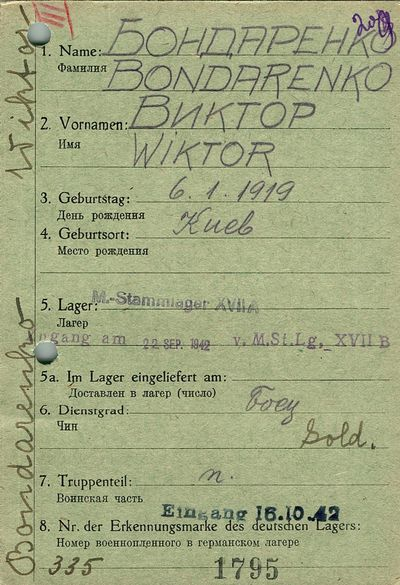 III
1. Name: БОНДАРЕНКО
Фамилия BONDARENKO
2. Vornamen: ВИКТОР
Имя WIKTOR
3. Geburtstag: 6.1.1919
День рождения
4. Geburtsort: Киев
Место рождения
5. Lager: M.-Stammlager XVII A
Лагер
ngang am 22. SEP. 1942 v. M.St.Lg, XVII B
5a. Im Lager eingeliefert am:
Доставлен в лагер (число)
6. Dienstgrad: Боец
Чин Sold.
7. Truppenteil: n.
Воинская часть
Eingang 16.10.42
8. Nr. der Erkennungsmarke des deutschen Lagers:
Номер военнопленного в германском лагере
335 1795
Bondarenko Wiktor